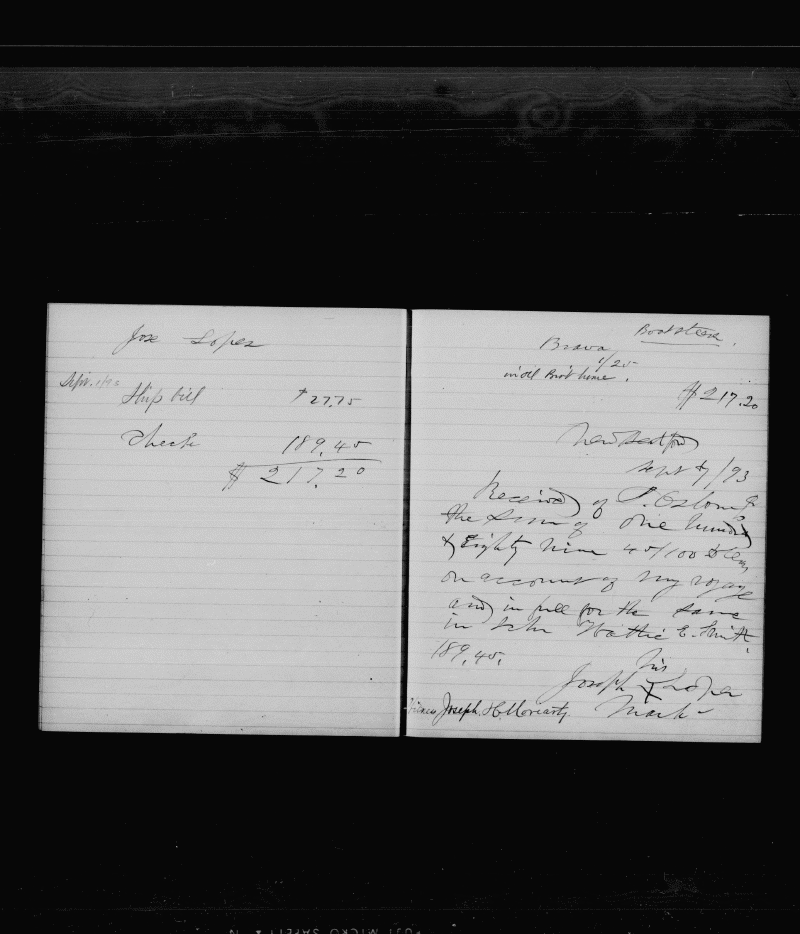 Jose Lopes
Sept. 1/93
Ship bill $27.75
Check 189.45
$ 217.20
Boatsteerer.
Brava
1/25
until Boat home.
$217.20
New Bedford
Sept 7/93
Received of
the sum of One hundred
& Eighty nine 45/100 Dolls
on account of my voyage
and in full for the same
in Schr Hattie E. Smith.
189.45.
his
Joseph X Lopes
mark
Witness Joseph. H. Moriarty
FUJI MICRO SAFETY